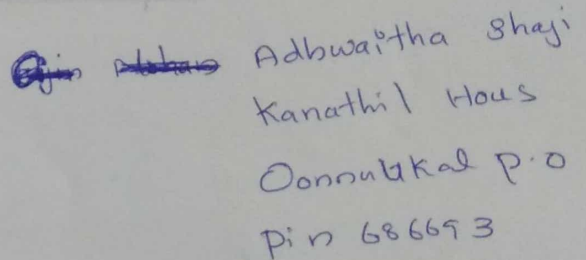 Adbwaitha Shaji
Kanathil Hous
Oonnukal P.O
Pin 686693